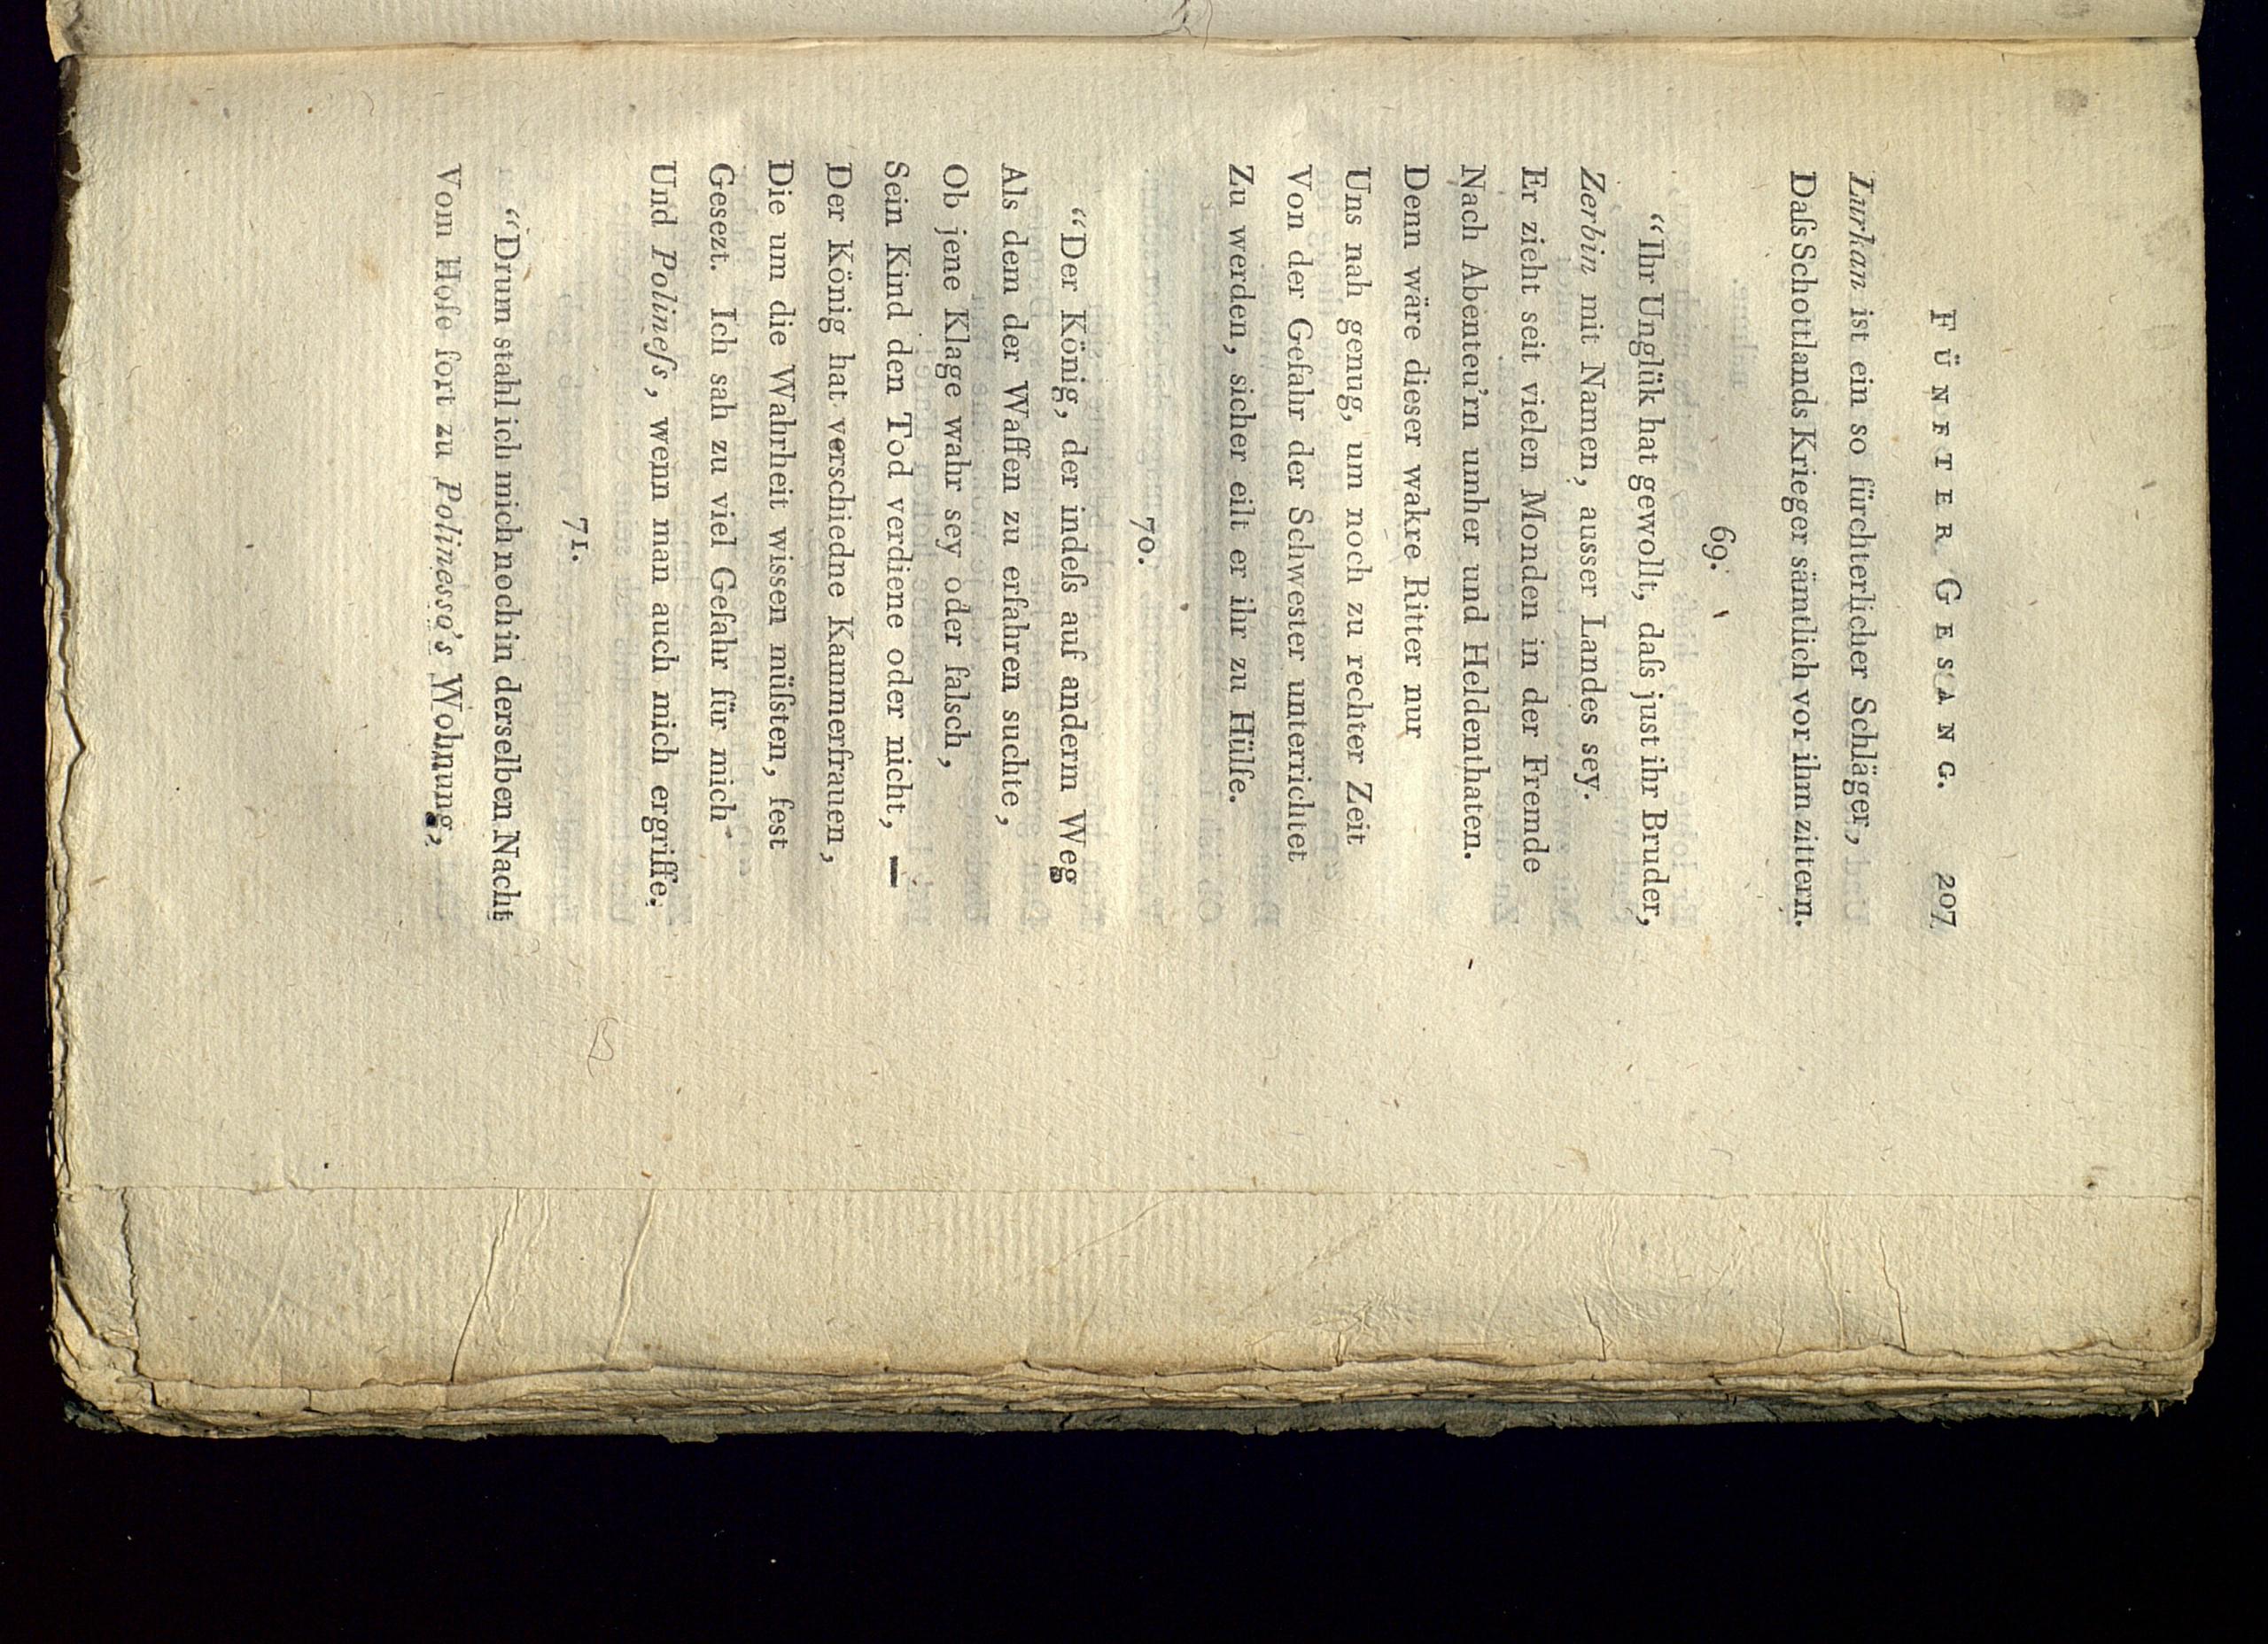 FÜNFTER GESANG. 207
Lurkan ist ein so fürchterlicher Schläger,
Daſs Schottlands Krieger sämtlich vor ihm zittern.
69.
“Ihr Unglük hat gewollt, daſs just ihr Bruder,
Zerbin mit Namen, ausser Landes sey.
Er zieht seit vielen Monden in der Fremde
Nach Abenteu'rn umher und Heldenthaten.
Denn wäre dieser wakre Ritter nur
Uns nah genug, um noch zu rechter Zeit
Von der Gefahr der Schwester unterrichtet
Zu werden, sicher eilt er ihr zu Hülfe.
70.
“Der König, der indeſs auf anderm Weg
Als dem der Waffen zu erfahren suchte,
Ob jene Klage wahr sey oder falsch,
Sein Kind den Tod verdiene oder nicht, —
Der König hat verschiedne Kammerfrauen,
Die um die Wahrheit wissen müſsten, fest
Gesezt. Ich sah zu viel Gefahr für mich
Und Polineſs, wenn man auch mich ergriffe.
71.
“Drum stahl ich mich noch in derselben Nacht
Vom Hofe fort zu Polinesso's Wohnung,